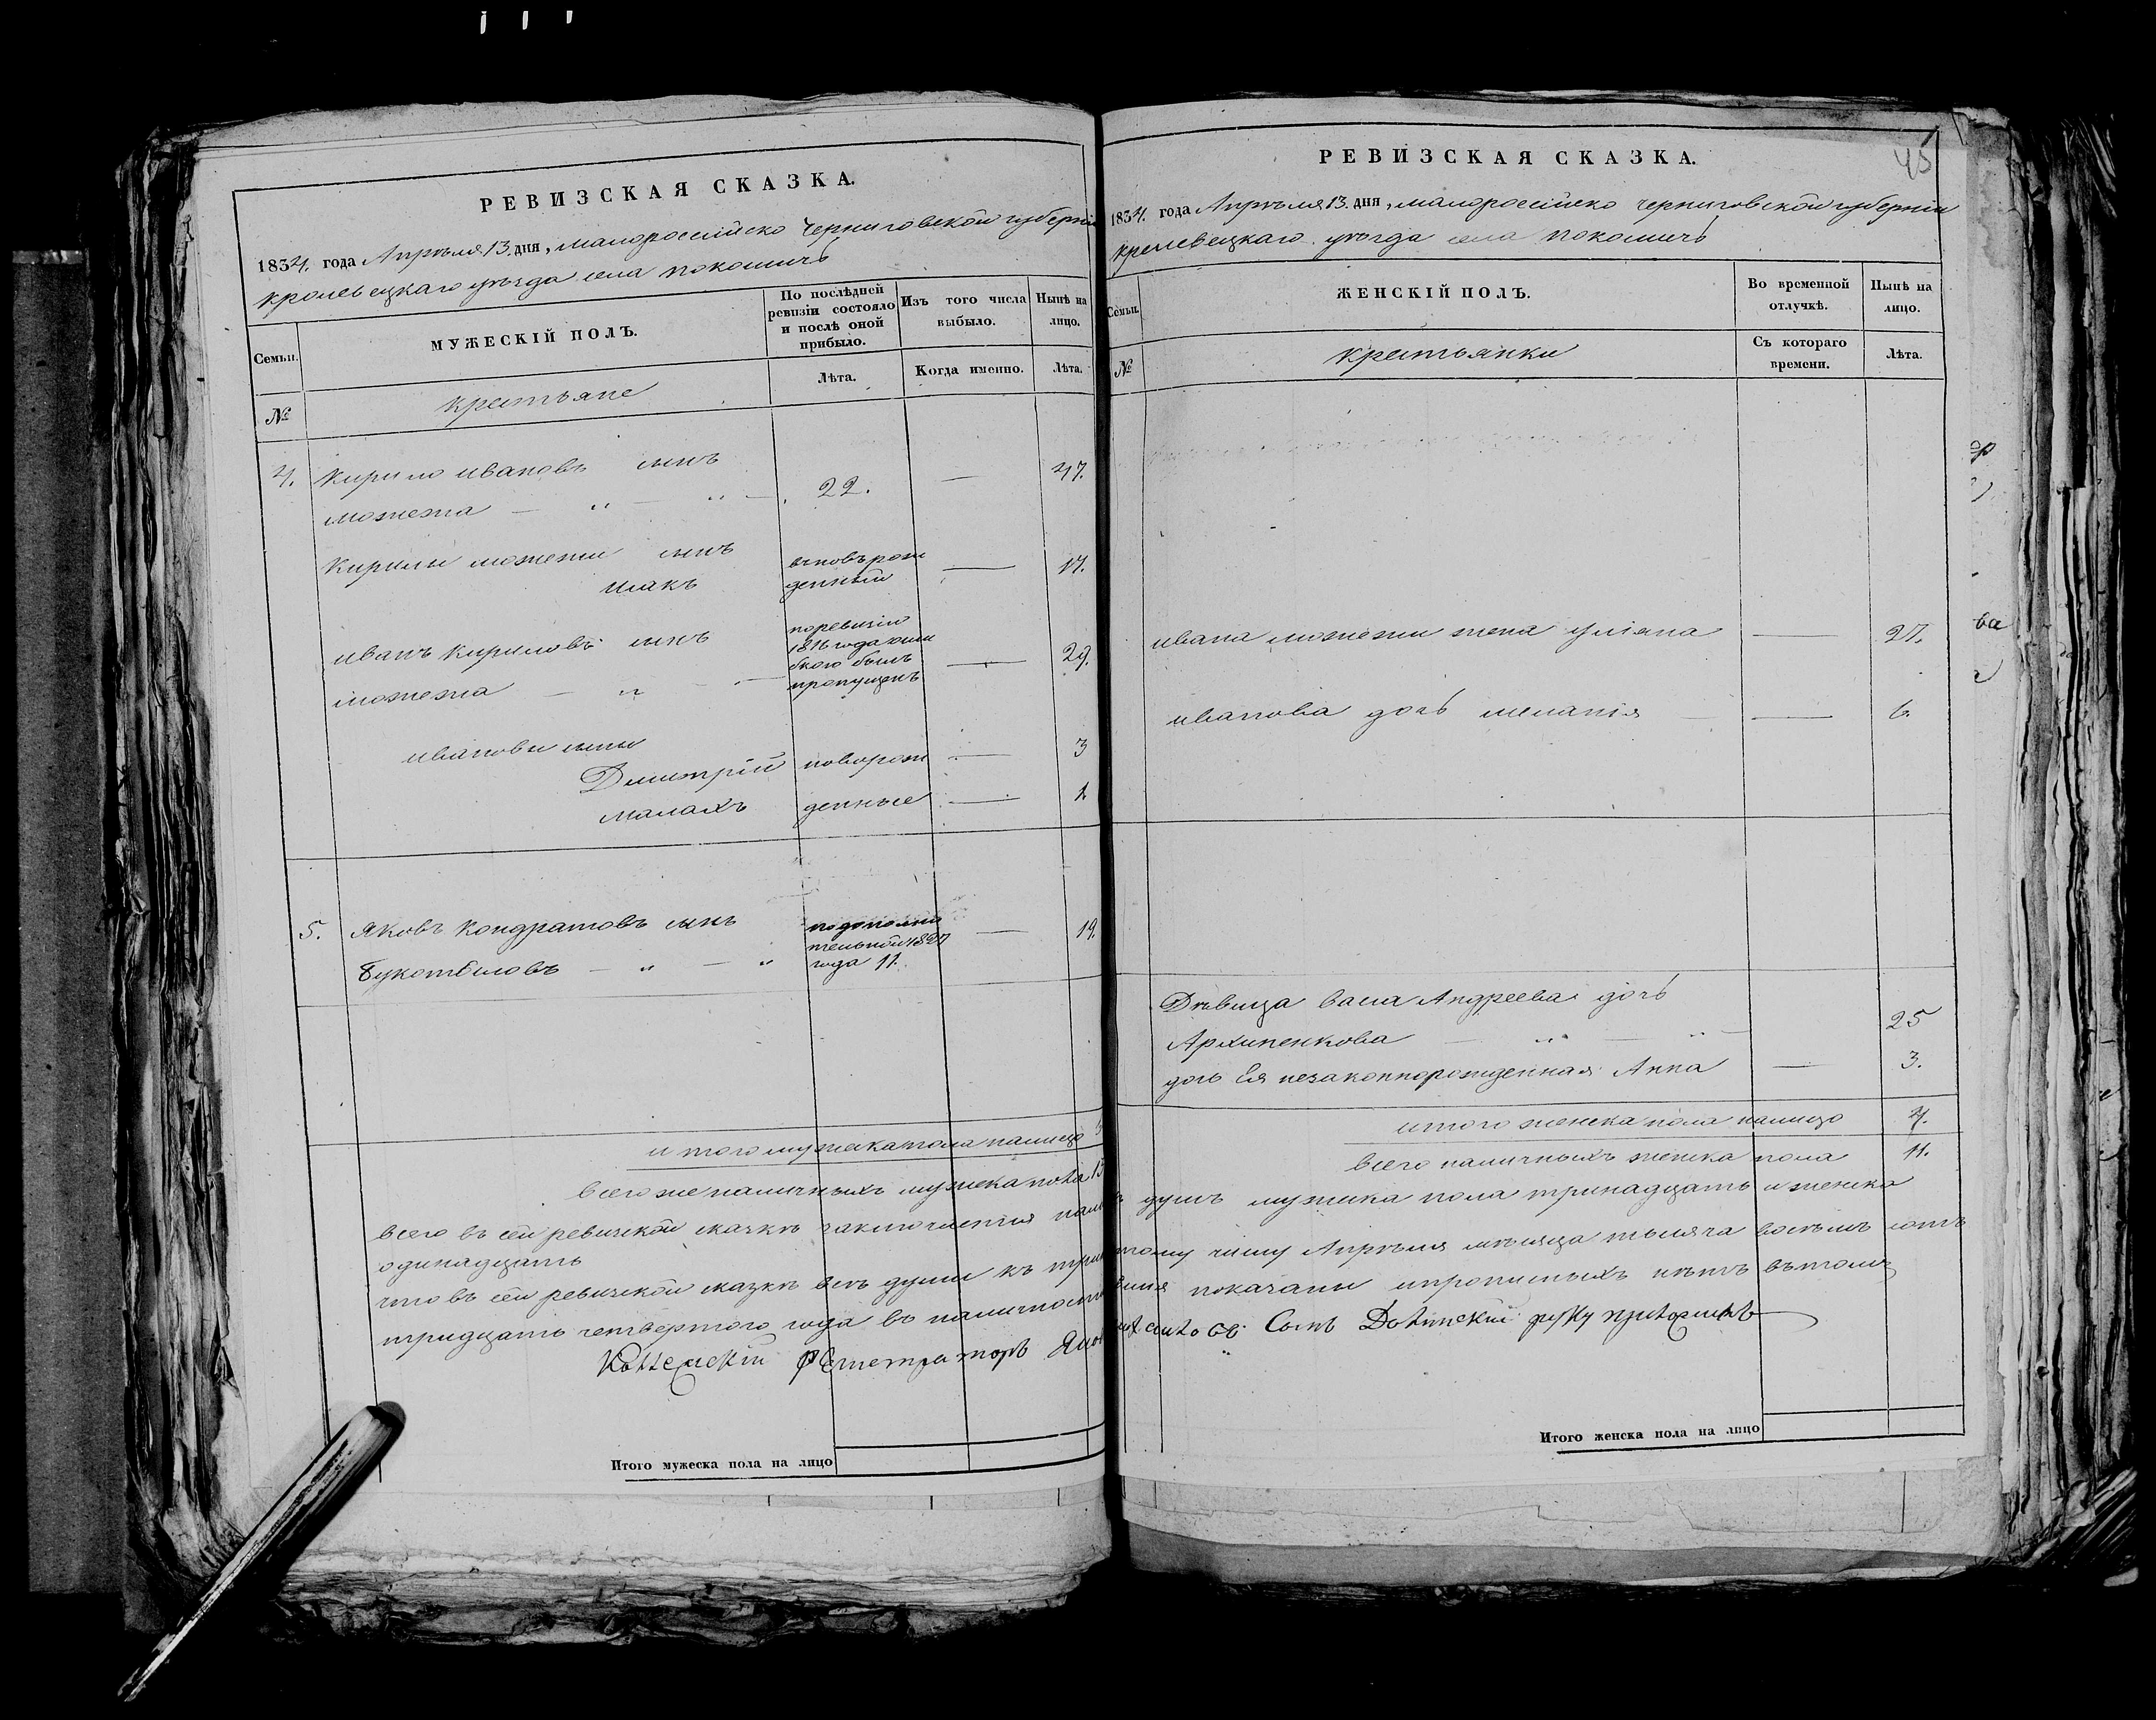 РЕВИЗСКАЯ СКАЗКА.
1834. года Апреѣля 13. дня, малороссійско Черниговской губерніи
кролевецкаго уѣзда села покошичь
Семьи.
МУЖЕСКІЙ ПОЛЪ.
По послѣдней ревизіи состояло и послѣ оной прибыло.
Изъ того числа выбыло.
Нынѣ на лицо.
№
крестьяне
Лѣта.
Когда именно.
Лѣта.
4. Кирило ивановъ сынъ
можежа — „ — „ — 22. — 47.
Кирилы можежи сынъ
исакъ
вновьрож
денный — 17.
иванъ Кириловъ сынъ
можежа — „ —
поревизіи
1816 года
былъ
пропущенъ — 29.
ивановы сыны
Дмитрій новорож — 3
малахъ денные — 1
5. Яковъ Кондратовъ сынъ
— „ — „
подополни
тельной 1827
года 11. — 19.
итого мужеска пола налицо
всего же наличныхъ мужска пола 13
всего въ сей ревизской сказкѣ заключается
одинадцать
что въ сей ревизской сказкѣ всѣ души къ
тридцать четвертого года въ наличности
Коллежскій регистраторъ
Итого мужеска пола на лицо
РЕВИЗСКАЯ СКАЗКА.
45
1834. года Апрѣля 13. дня, малороссійско черниговской губерніи
кролевецкаго уѣзда села покошичь
Семьи.
ЖЕНСКІЙ ПОЛЪ.
Во временной отлучкѣ.
Нынѣ на лицо.
№
крестьянки
Съ котораго времени.
Лѣта.
ивана можежи жена уліяна — 27.
иванова дочь меланія — 6
Дѣвица Васса Андреева дочь
Архипенкова — „ — „ — 25
дочь Ея незаконнорожденная Анна — 3.
итого женска пола налицо 4.
всего наличныхъ женска пола 11.
душъ мужеска пола тринадцать и женска
тому числу Апрѣля мѣсяца тысяча восемъ сотъ
показаны ипрописныхъ нѣтъ въ томъ
Сынъ Долинскій руку приложилъ
Итого женска пола на лицо